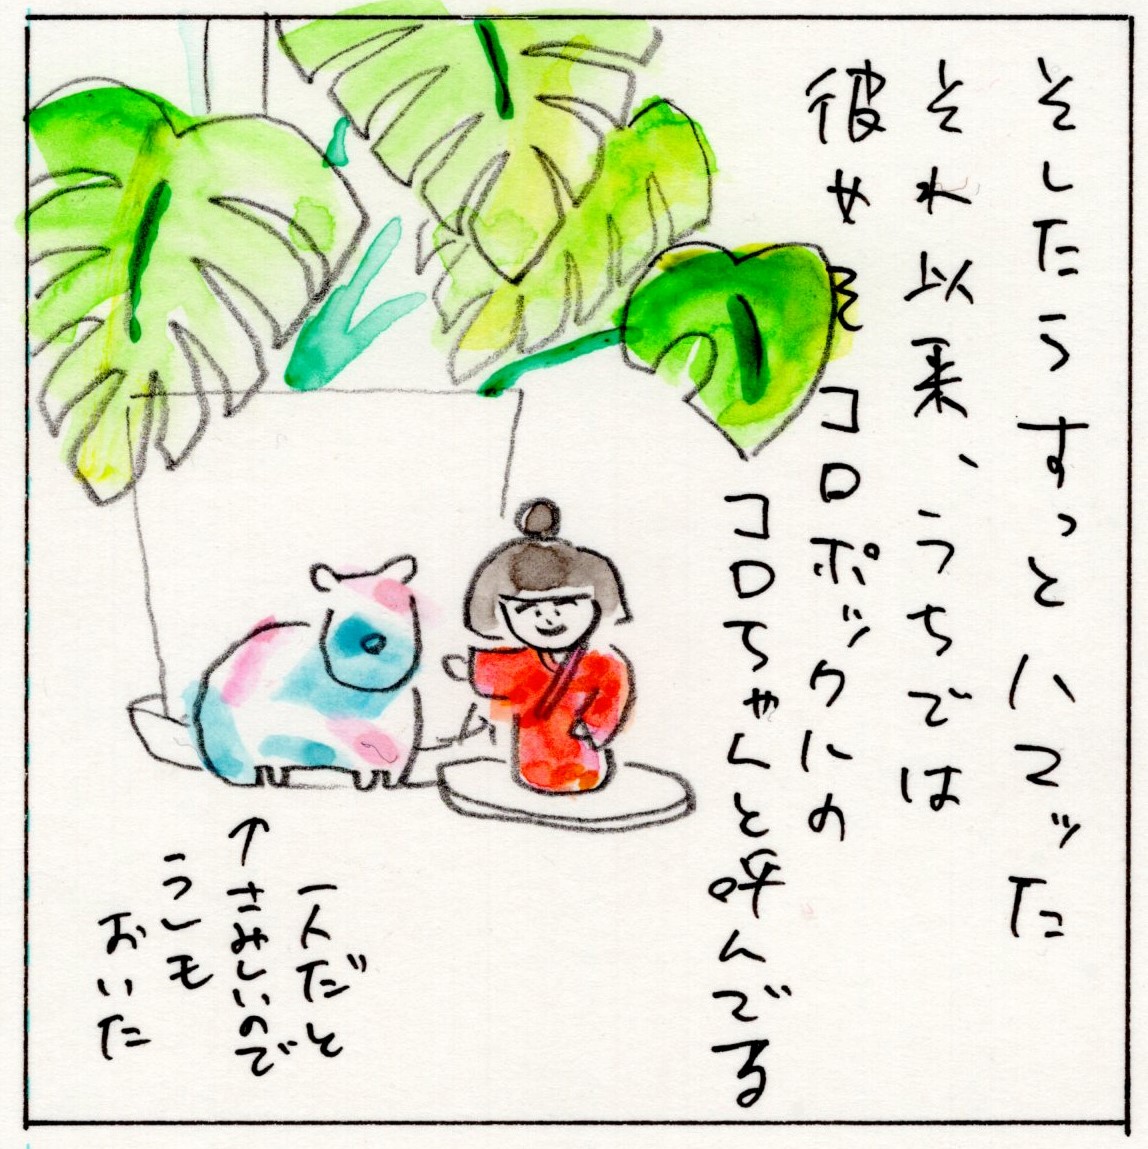 そしたらすっとハマッた
それ以来、うちでは
彼女をコロポックルの
コロちゃんと呼んでる
一人だと
↑さみしいので
うしも
おいた